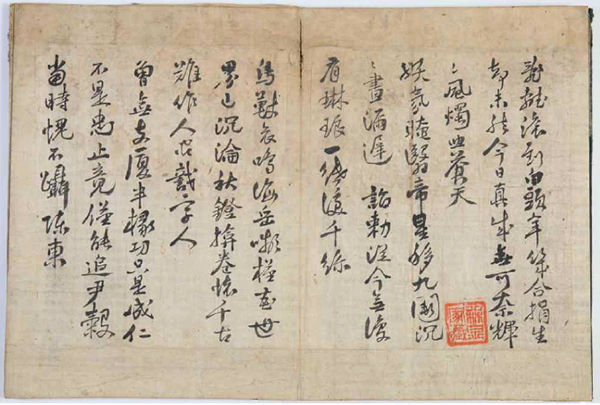 亂離滾到白頭年幾合捐生
却未然今日真成無可奈輝
〻風燭照蒼天
妖氛晻翳帝星移九闕沉
〻晝漏遲詔勅從今無復
有琳琅一紙淚千絲
鳥獸哀鳴海岳嚬槿花世
界已沉淪秋鐙掩卷懷千古
難作人間識字人
曾無支厦半椽功只是成仁
不是忠止竟僅能追尹穀
當時愧不躡陳東